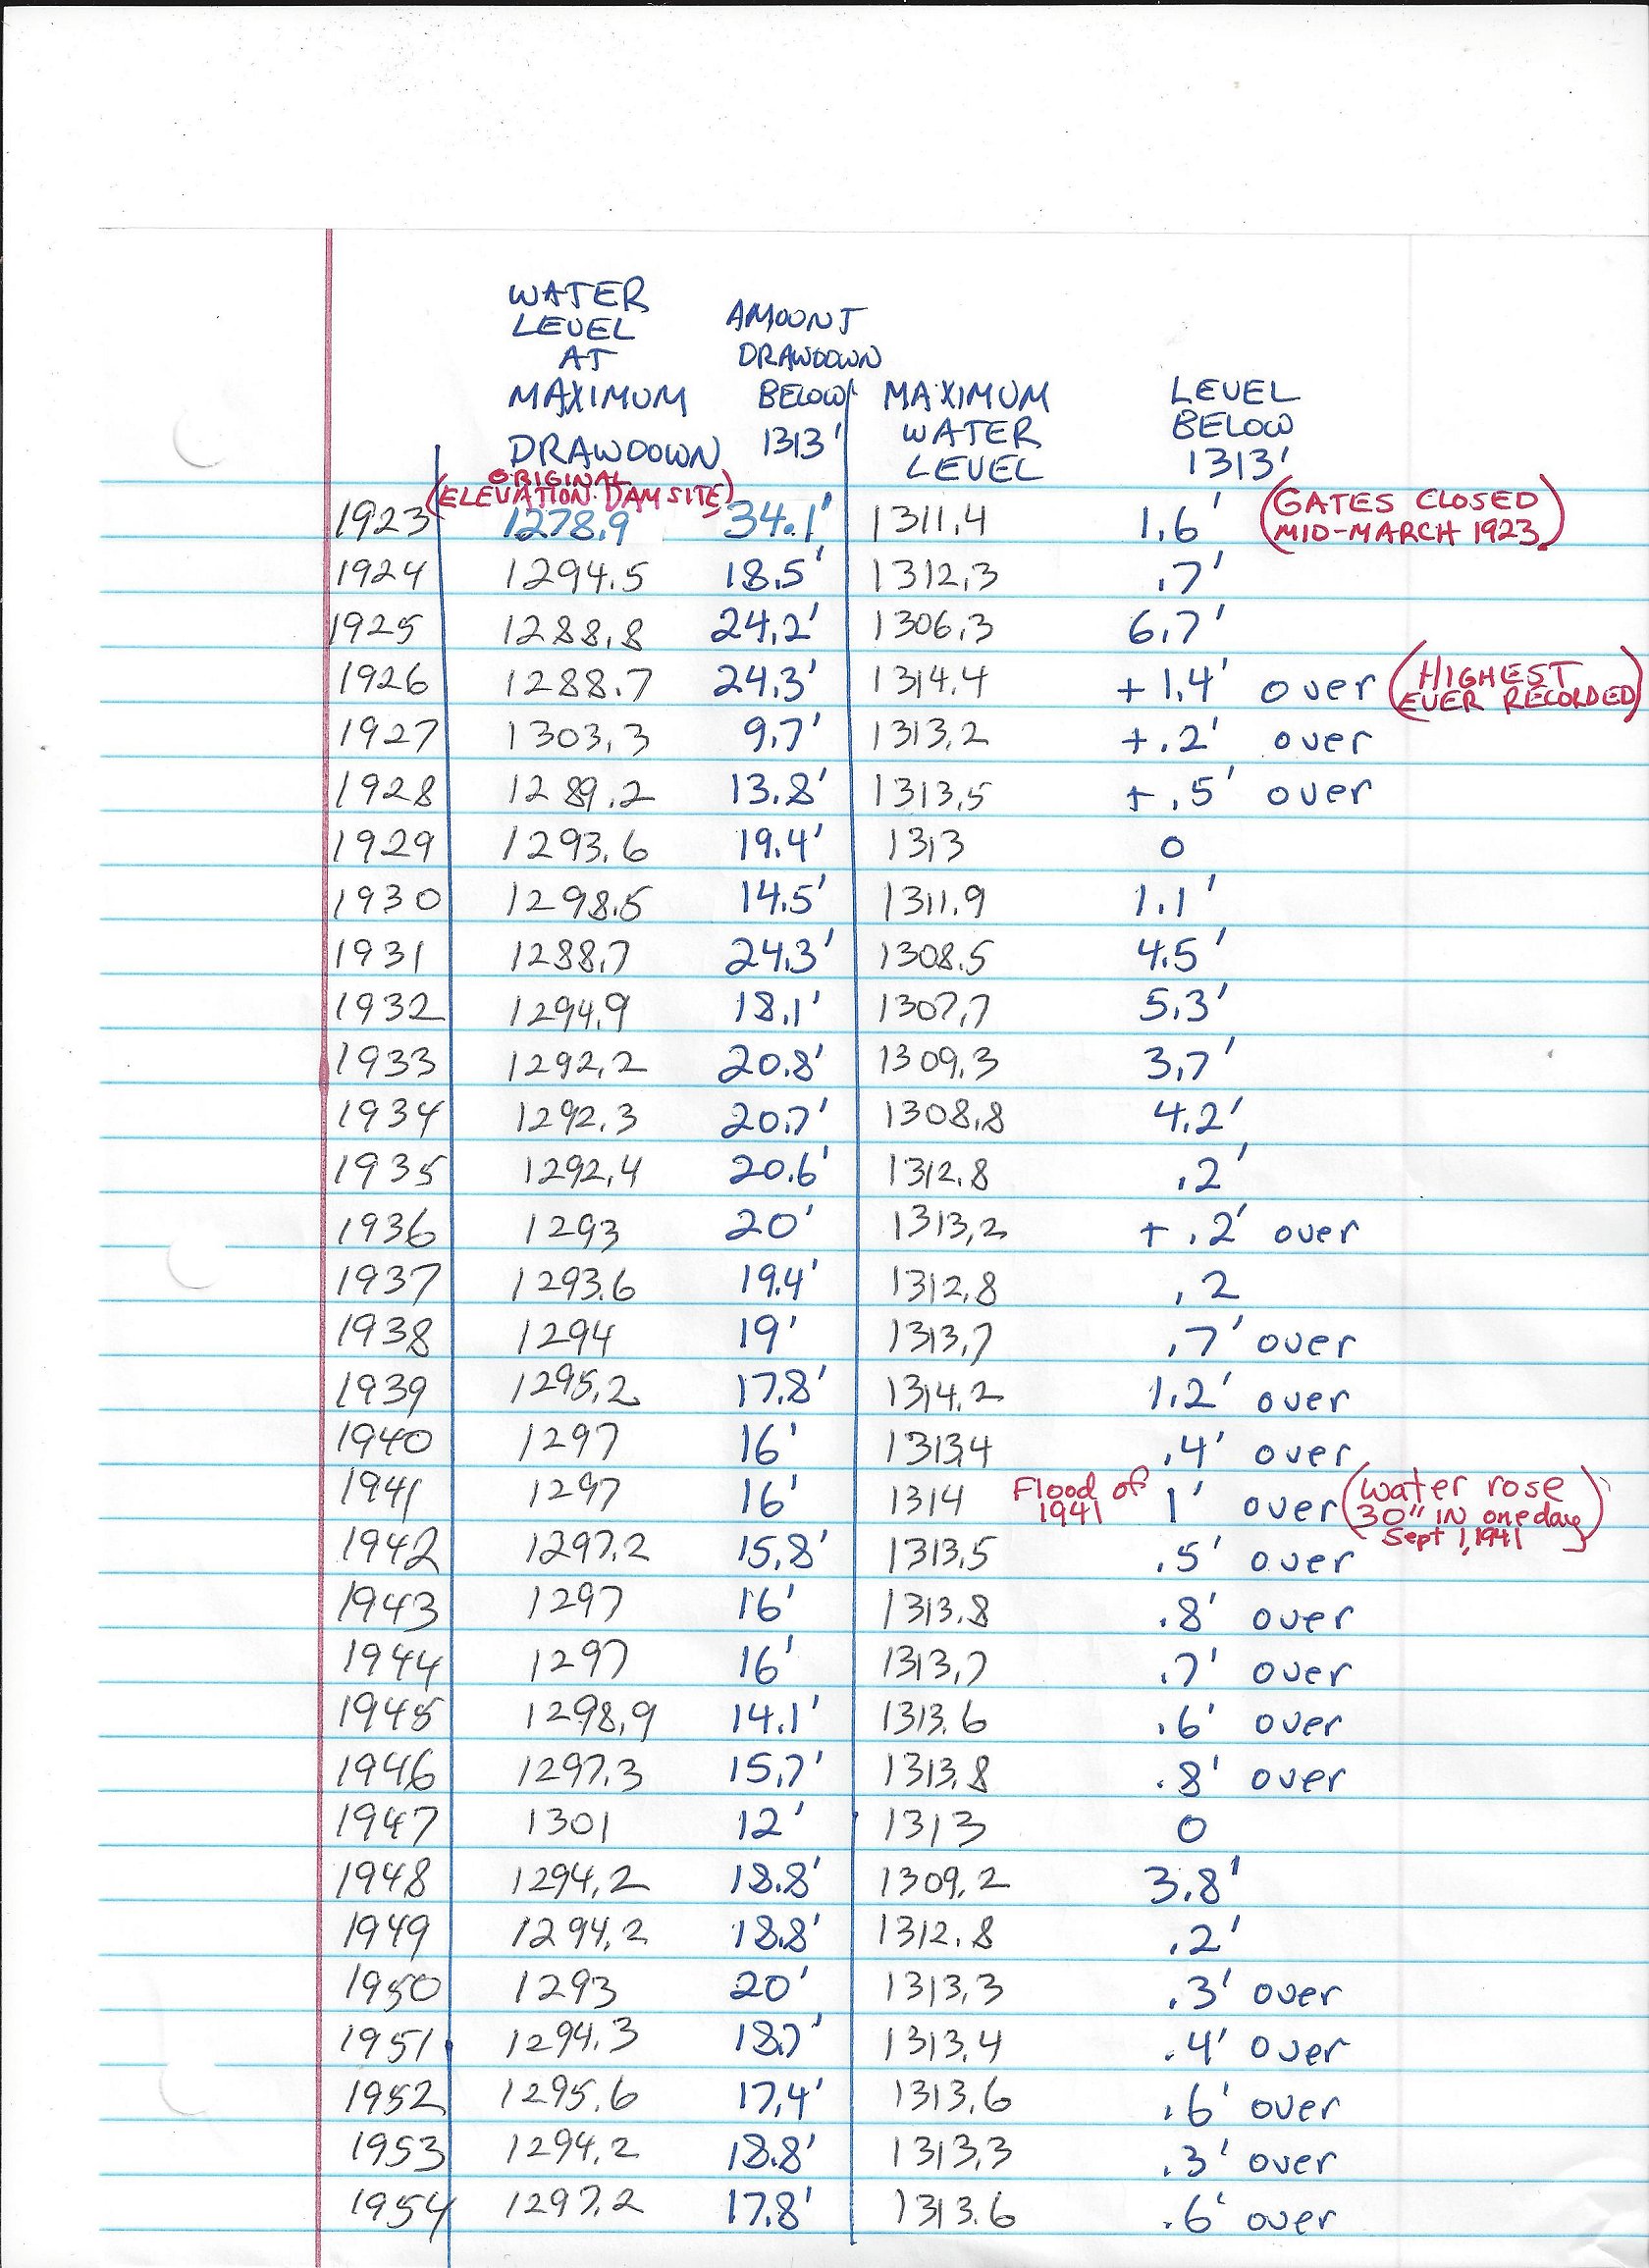 WATER
LEVEL
AT
MAXIMUM
DRAWDOWN
AMOUNT
DRAWDOWN
BELOW
1313'
MAXIMUM
WATER
LEVEL
LEVEL
BELOW
1313'
(ORIGINAL
ELEVATION·DAM SITE)
1923 1278.9 34.1' 1311.4 1.6' (GATES CLOSED
MID-MARCH 1923.)
1924 1294.5 18.5' 1312.3 .7'
1925 1288.8 24.2' 1306.3 6.7'
1926 1288.7 24.3' 1314.4 +1.4' over (HIGHEST
EVER RECORDED)
1927 1303.3 9.7' 1313.2 +.2' over
1928 1289.2 13.8' 1313.5 +.5' over
1929 1293.6 19.4' 1313 0
1930 1298.5 14.5' 1311.9 1.1'
1931 1288.7 24.3' 1308.5 4.5'
1932 1294.9 18.1' 1307.7 5.3'
1933 1292.2 20.8' 1309.3 3.7'
1934 1292.3 20.7' 1308.8 4.2'
1935 1292.4 20.6' 1312.8 .2'
1936 1293 20' 1313.2 +.2' over
1937 1293.6 19.4' 1312.8 .2
1938 1294 19' 1313.7 .7' over
1939 1295.2 17.8' 1314.2 1.2' over
1940 1297 16' 1313.4 .4' over
1941 1297 16' 1314 Flood of 1941 1' over (water rose
30" IN one day
Sept 1, 1941)
1942 1297.2 15.8' 1313.5 .5' over
1943 1297 16' 1313.8 .8' over
1944 1297 16' 1313.7 .7' over
1945 1298.9 14.1' 1313.6 .6' over
1946 1297.3 15.7' 1313.8 .8' over
1947 1301 12' 1313 0
1948 1294.2 18.8' 1309.2 3.8'
1949 1294.2 18.8' 1312.8 .2'
1950 1293 20' 1313.3 .3' over
1951 1294.3 18.7' 1313.4 .4' over
1952 1295.6 17.4' 1313.6 .6' over
1953 1294.2 18.8' 1313.3 .3' over
1954 1297.2 17.8' 1313.6 .6' over